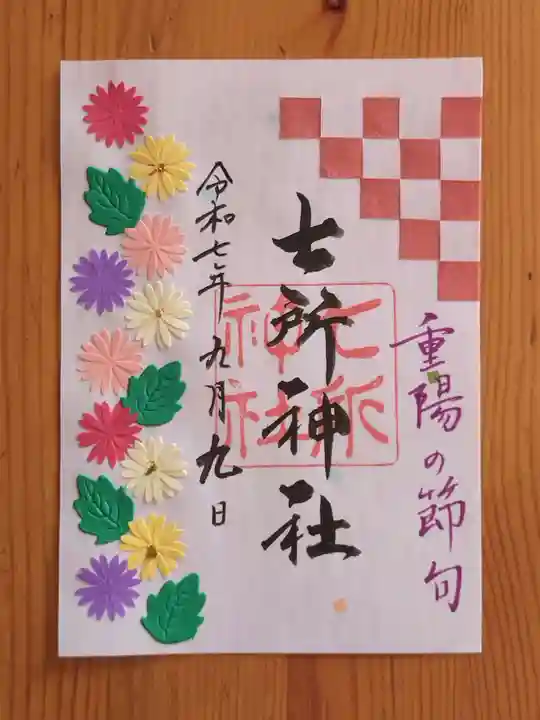 重陽の節句
七所神社
七所
神社
令和七年九月九日